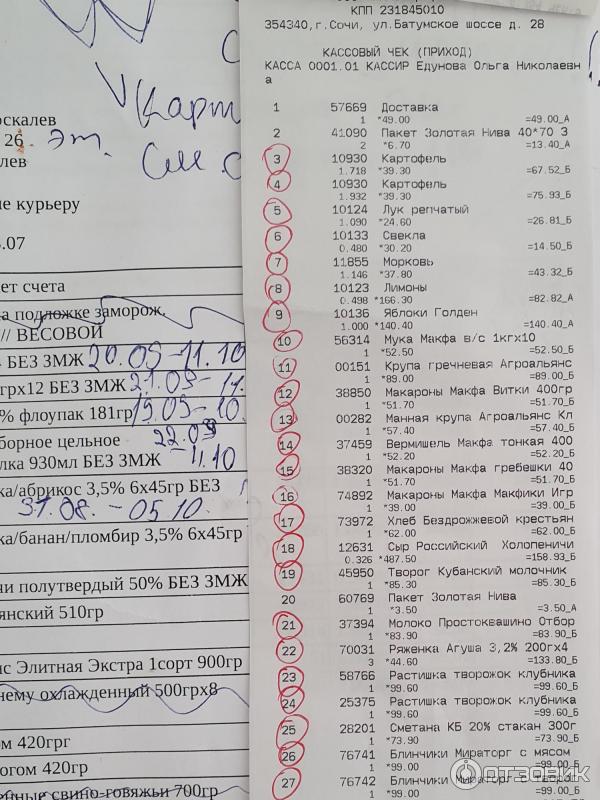 оскалев
26.
эт.
лев
не курьеру
.07
ет счета
а подложке заморож.
// ВЕСОВОЙ
БЕЗ ЗМЖ 20.09-11.10
грх12 БЕЗ ЗМЖ 21.09-11
% флоупак 181гр 19.09-10.
борное цельное 22.09
лка 930мл БЕЗ ЗМЖ -11.10
ка/абрикос 3,5% 6х45гр БЕЗ
31.08.-05.10.
ка/банан/пломбир 3,5% 6х45гр
чи полутвердый 50% БЕЗ ЗМЖ
янский 510гр
с Элитная Экстра 1сорт 900гр
нему охлажденный 500грх8
ом 420грг
огом 420гр
енные свино-говяжьи 700гр
КПП 231845010
354340,г.Сочи, ул.Батумское шоссе д. 28
КАССОВЫЙ ЧЕК (ПРИХОД)
КАССА 0001.01 КАССИР Едунова Ольга Николаевн
а
1 57669 Доставка
1 *49.00 =49.00_А
2 41090 Пакет Золотая Нива 40*70 З
2 *6.70 =13.40_А
3 10930 Картофель
1.718 *39.30 =67.52_Б
4 10930 Картофель
1.932 *39.30 =75.93_Б
5 10124 Лук репчатый
1.090 *24.60 =26.81_Б
6 10133 Свекла
0.480 *30.20 =14.50_Б
7 11855 Морковь
1.146 *37.80 =43.32_Б
8 10123 Лимоны
0.498 *166.30 =82.82_А
9 10136 Яблоки Голден
1.000 *140.40 =140.40_А
10 56314 Мука Макфа в/с 1кгх10
1 *52.50 =52.50_Б
11 00151 Крупа гречневая Агроальянс
1 *89.00 =89.00_Б
12 38850 Макароны Макфа Витки 400гр
1 *51.70 =51.70_Б
13 00282 Манная крупа Агроальянс Кл
1 *57.40 =57.40_Б
14 37459 Вермишель Макфа тонкая 400
1 *52.20 =52.20_Б
15 38320 Макароны Макфа гребешки 40
1 *51.70 =51.70_Б
16 74892 Макароны Макфа Макфики Игр
1 *39.00 =39.00_Б
17 73972 Хлеб Бездрожжевой крестьян
1 *62.00 =62.00_Б
18 12631 Сыр Российский Холопеничи
0.326 *487.50 =158.93_Б
19 45950 Творог Кубанский молочник
1 *85.30 =85.30_Б
20 60769 Пакет Золотая Нива
1 *3.50 =3.50_А
21 37394 Молоко Простоквашино Отбор
1 *83.90 =83.90_Б
22 70031 Ряженка Агуша 3,2% 200гх4
3 *44.60 =133.80_Б
23 58766 Растишка творожок клубника
1 *99.60 =99.60_Б
24 25375 Растишка творожок клубника
1 *99.60 =99.60_Б
25 28201 Сметана КБ 20% стакан 300г
1 *73.90 =73.90_Б
26 76741 Блинчики Мираторг с мясом
1 *99.00 =99.00_Б
27 76742 Блинчики Мираторг с творог
1 *99.00 =99.00_Б
ОТЗОВИК